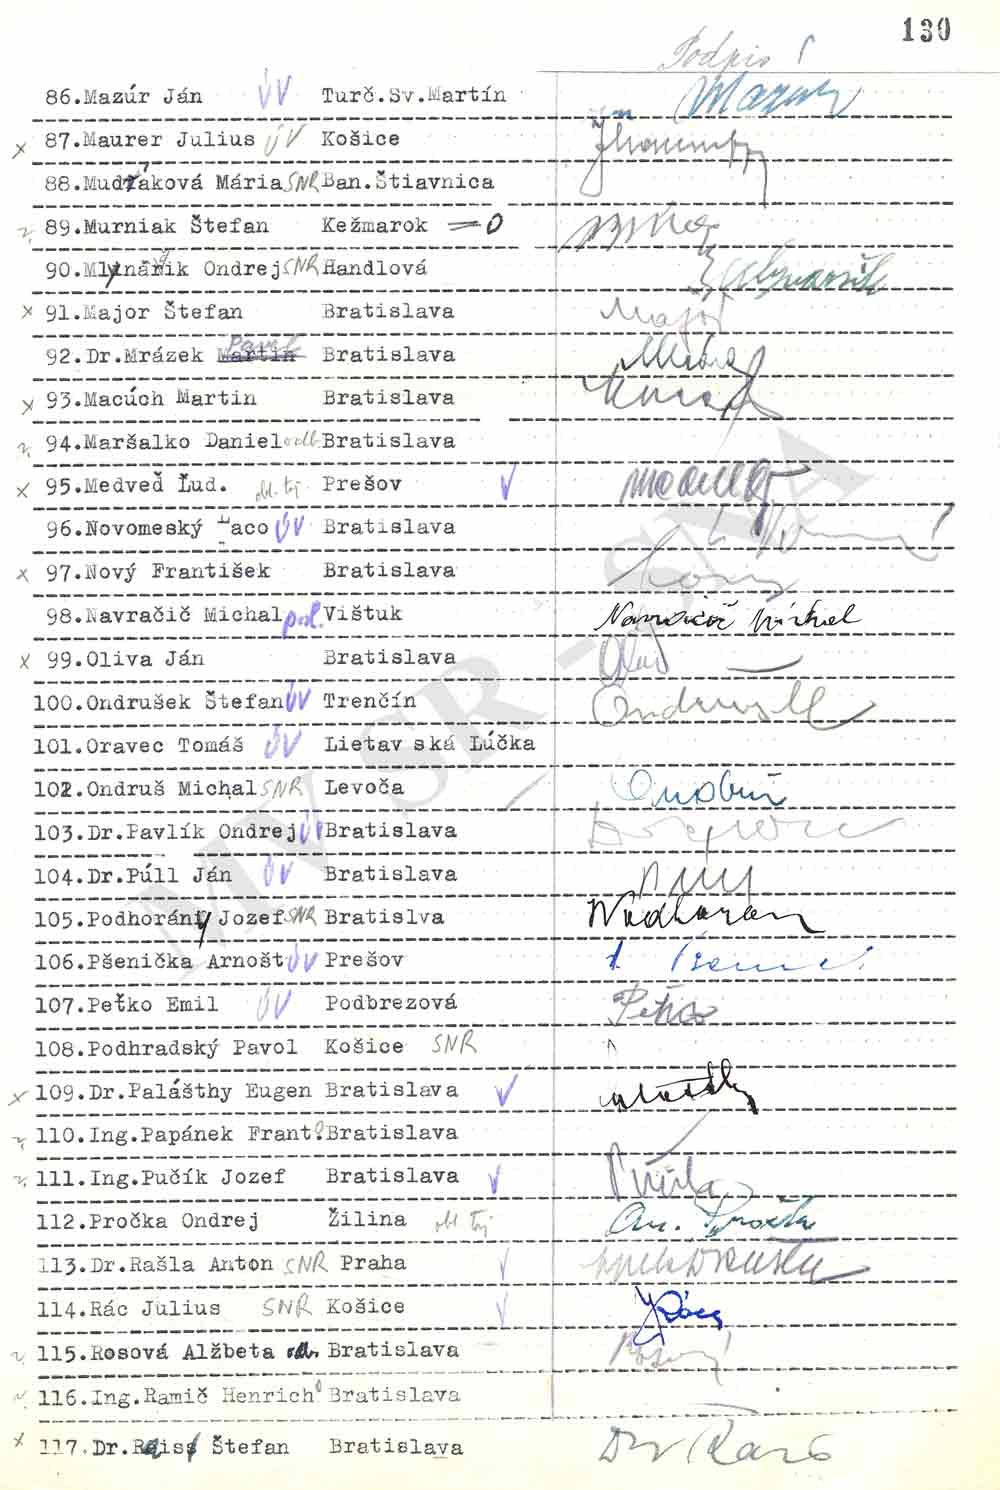 130
Podpis
86.Mazúr Ján ÚV Turč.Sv.Martín Mazúr
x 87.Maurer Julius ÚV Košice
88.Mudráková Mária SNR Ban.Štiavnica
89.Murniak Štefan Kežmarok =0
90.Mlynárik Ondrej SNR Handlová Mlynárik
x 91.Major Štefan Bratislava Major
92.Dr.Mrázek Martin Pavel Bratislava
x 93.Macúch Martin Bratislava
94.Maršalko Daniel odb. Bratislava
x 95.Medveď Ľud. obl. taj Prešov √
96.Novomeský Laco ÚV Bratislava
x 97.Nový František Bratislava
98.Navračič Michal pol. Vištuk Navračič Michal
x 99.Oliva Ján Bratislava
100.Ondrušek Štefan ÚV Trenčín Ondrušek
101.Oravec Tomáš ÚV Lietavská Lúčka
102.Ondruš Michal SNR Levoča
103.Dr.Pavlík Ondrej ÚV Bratislava
104.Dr.Púll Ján ÚV Bratislava
105.Podhorány Jozef SNR Bratislva
106.Pšenička Arnošt ÚV Prešov
107.Peťko Emil ÚV Podbrezová Peťko
108.Podhradský Pavol Košice SNR
x 109.Dr.Palášthy Eugen Bratislava √
110.Ing.Papánek Frant. Bratislava
111.Ing.Pučík Jozef Bratislava √
112.Pročka Ondrej Žilina obl taj On. Pročka
113.Dr.Rašla Anton SNR Praha √
114.Rác Julius SNR Košice √ JRác
115.Rosová Alžbeta odb. Bratislava Rosová
116.Ing.Ramič Henrich Bratislava
x 117.Dr.Rais Štefan Bratislava Dr Rais
MV SR - SNA